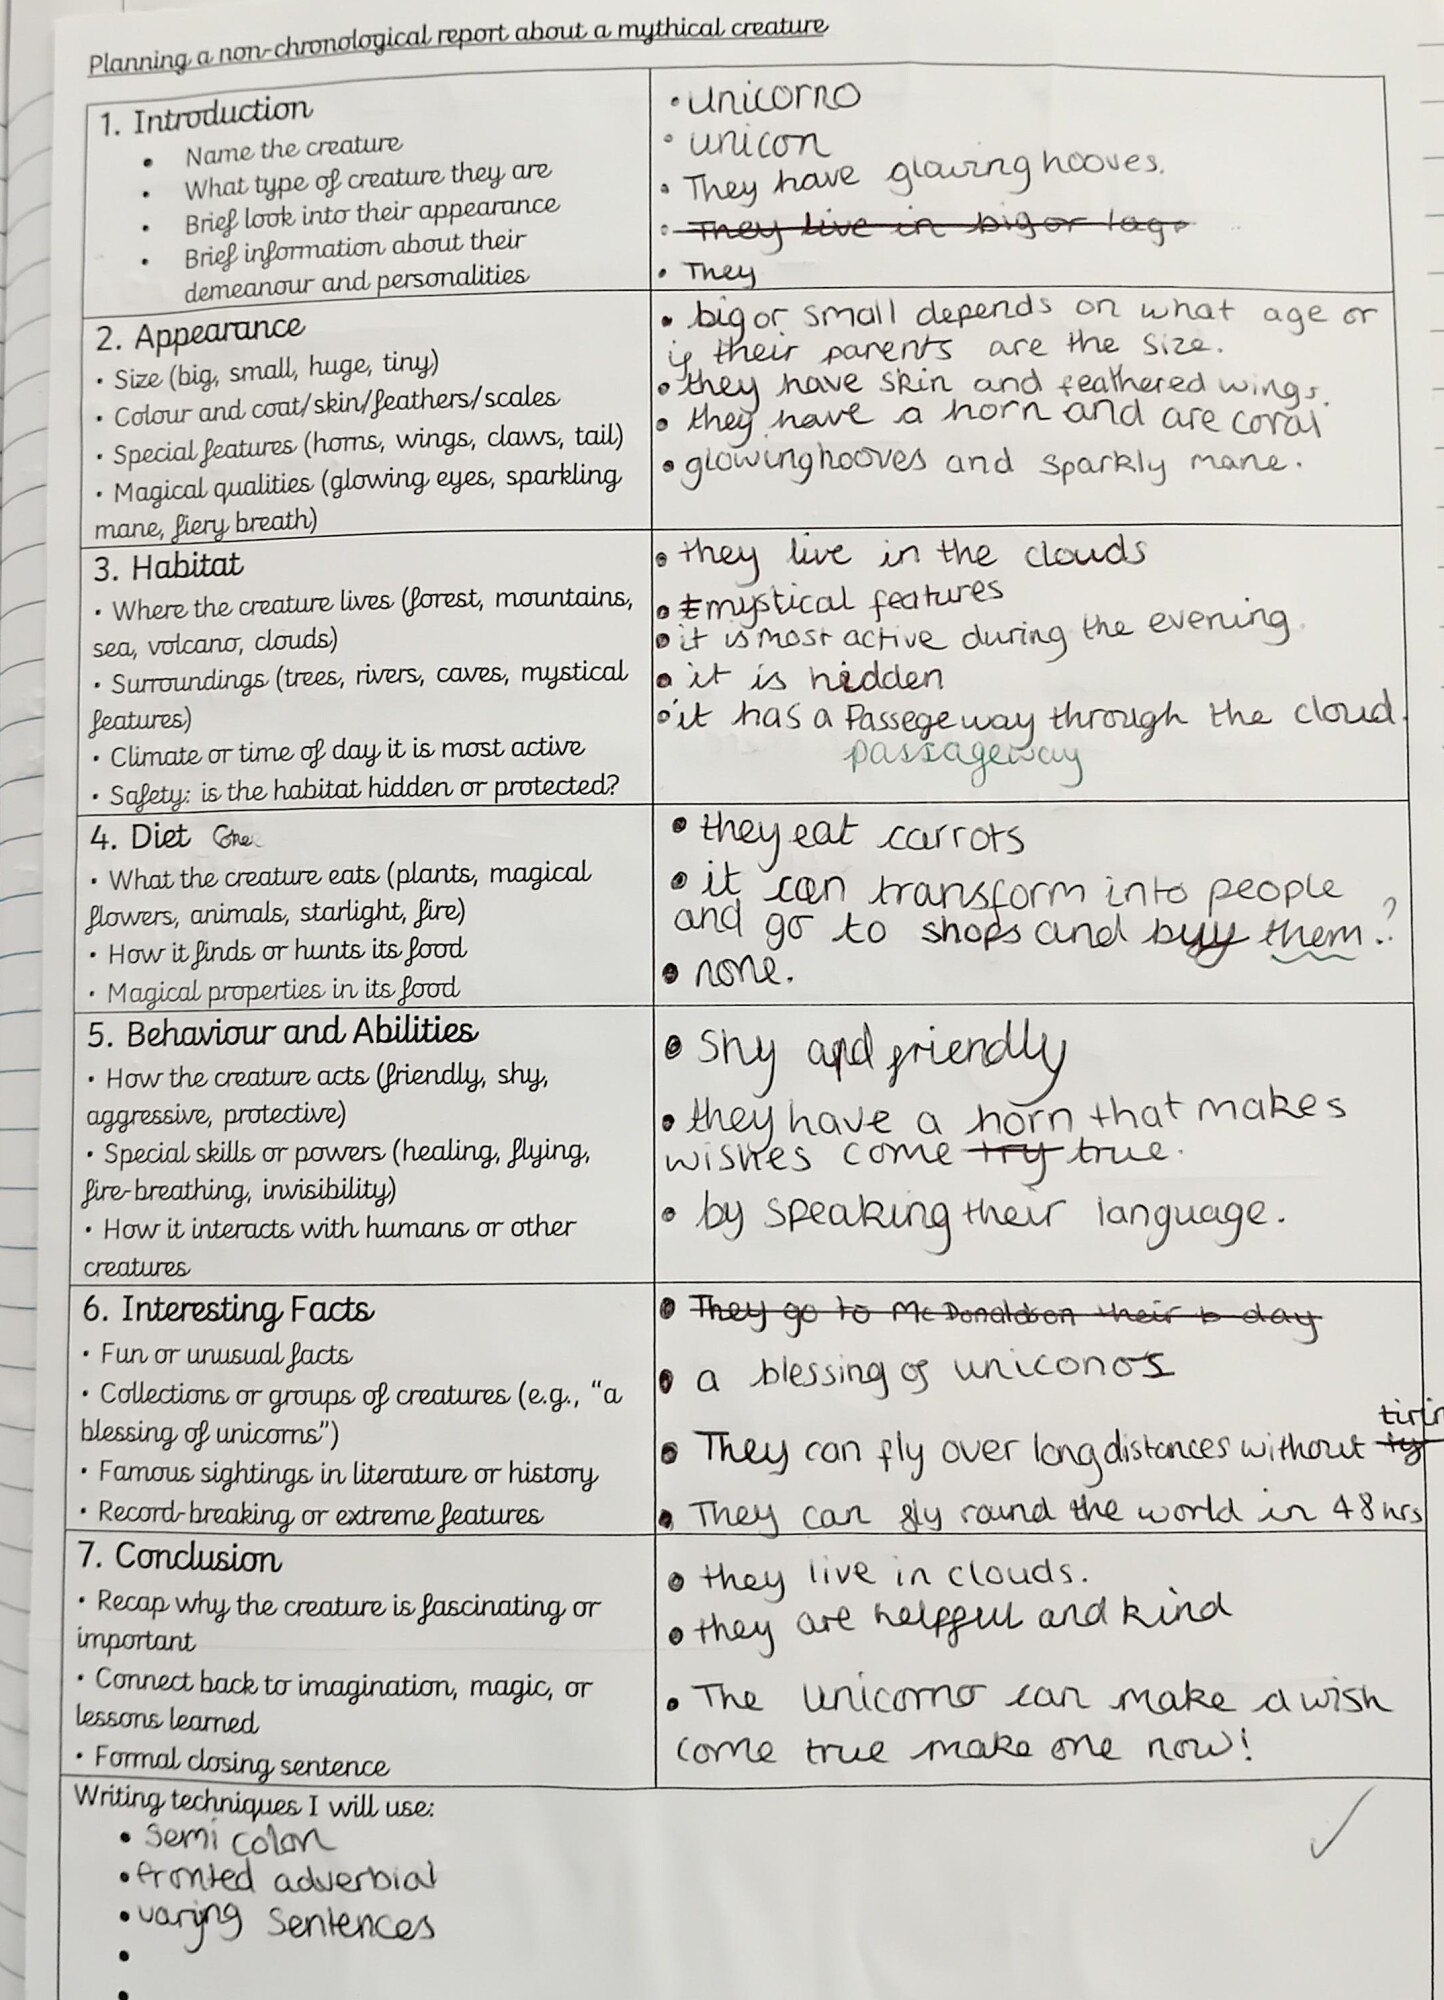 Planning a non-chronological report about a mythical creature
1. Introduction
• Name the creature
• What type of creature they are
• Brief look into their appearance
• Brief information about their
demeanour and personalities
• unicorno
• unicon
• They have glowing hooves.
• They live in big or lag
• They
2. Appearance
• Size (big, small, huge, tiny)
• Colour and coat/skin/feathers/scales
• Special features (horns, wings, claws, tail)
• Magical qualities (glowing eyes, sparkling
mane, fiery breath)
• big or small depends on what age or
if their parents are the size.
• they have skin and feathered wings.
• they have a horn and are coral
• glowing hooves and sparkly mane.
3. Habitat
• Where the creature lives (forest, mountains,
sea, volcano, clouds)
• Surroundings (trees, rivers, caves, mystical
features)
• Climate or time of day it is most active
• Safety: is the habitat hidden or protected?
• they live in the clouds
• mystical features
• it is most active during the evening.
• it is hidden
• it has a Passegeway through the cloud.
passageway
4. Diet
• What the creature eats (plants, magical
flowers, animals, starlight, fire)
• How it finds or hunts its food
• Magical properties in its food
• they eat carrots
• it can transform into people
and go to shops and buy them.?
• none.
5. Behaviour and Abilities
• How the creature acts (friendly, shy,
aggressive, protective)
• Special skills or powers (healing, flying,
fire-breathing, invisibility)
• How it interacts with humans or other
creatures
• Shy and friendly
• they have a horn that makes
wishes come try true.
• by speaking their language.
6. Interesting Facts
• Fun or unusual facts
• Collections or groups of creatures (e.g., "a
blessing of unicorns")
• Famous sightings in literature or history
• Record-breaking or extreme features
• They go to McDonalds on their b day
• a blessing of uniconos
• They can fly over long distances without
• They can fly round the world in 48hrs
7. Conclusion
• Recap why the creature is fascinating or
important
• Connect back to imagination, magic, or
lessons learned
• Formal closing sentence
• they live in clouds.
• they are helpful and kind
• The unicorno can make a wish
come true make one now!
Writing techniques I will use:
• Semi colon
• fronted adverbial
• varying sentences